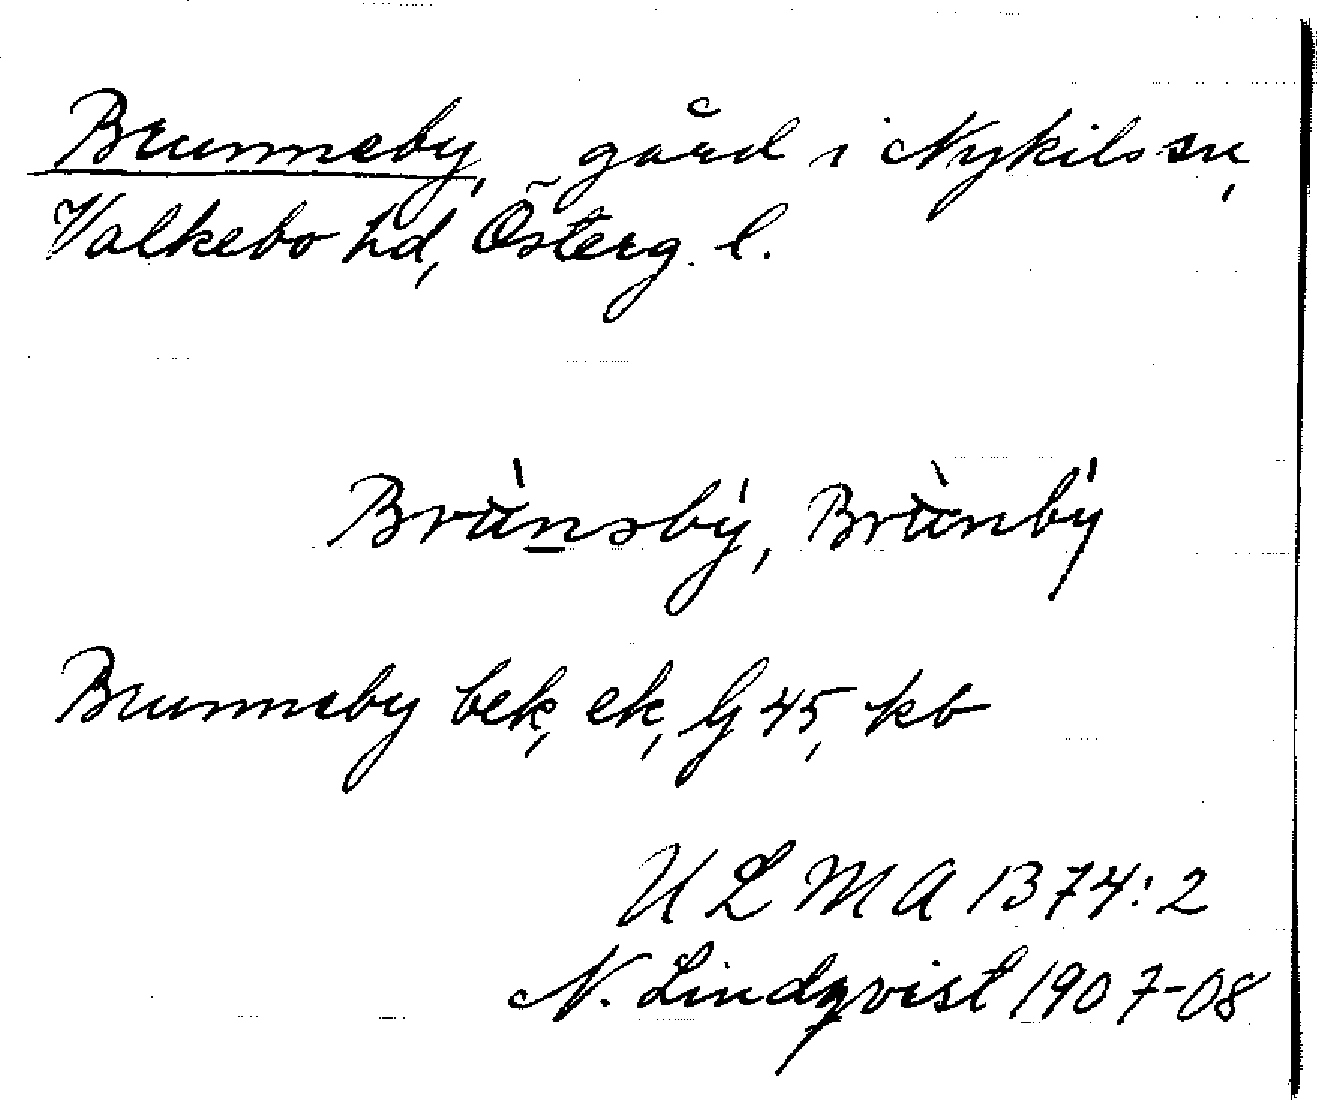 Brunneby, gård i Nykils sn,
Valkebo hd, Österg. l.
Brùnsby̍, Brùnby̍
Brunneby bek, ek, G 45, kb
ULMA 1374:2
N. Lindqvist 1907-08